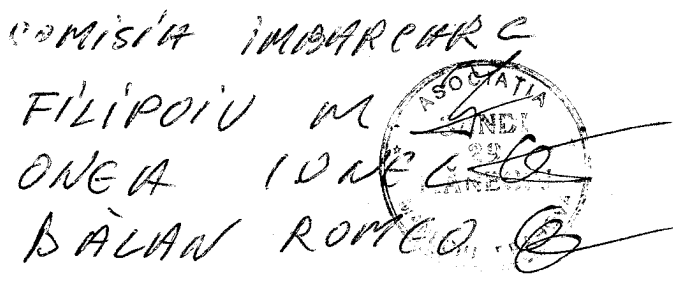 COMISIA IMBARCARE
FILIPOIU M
ONEA IONEL
BĂLAN ROMEO
ASOCIAŢIA